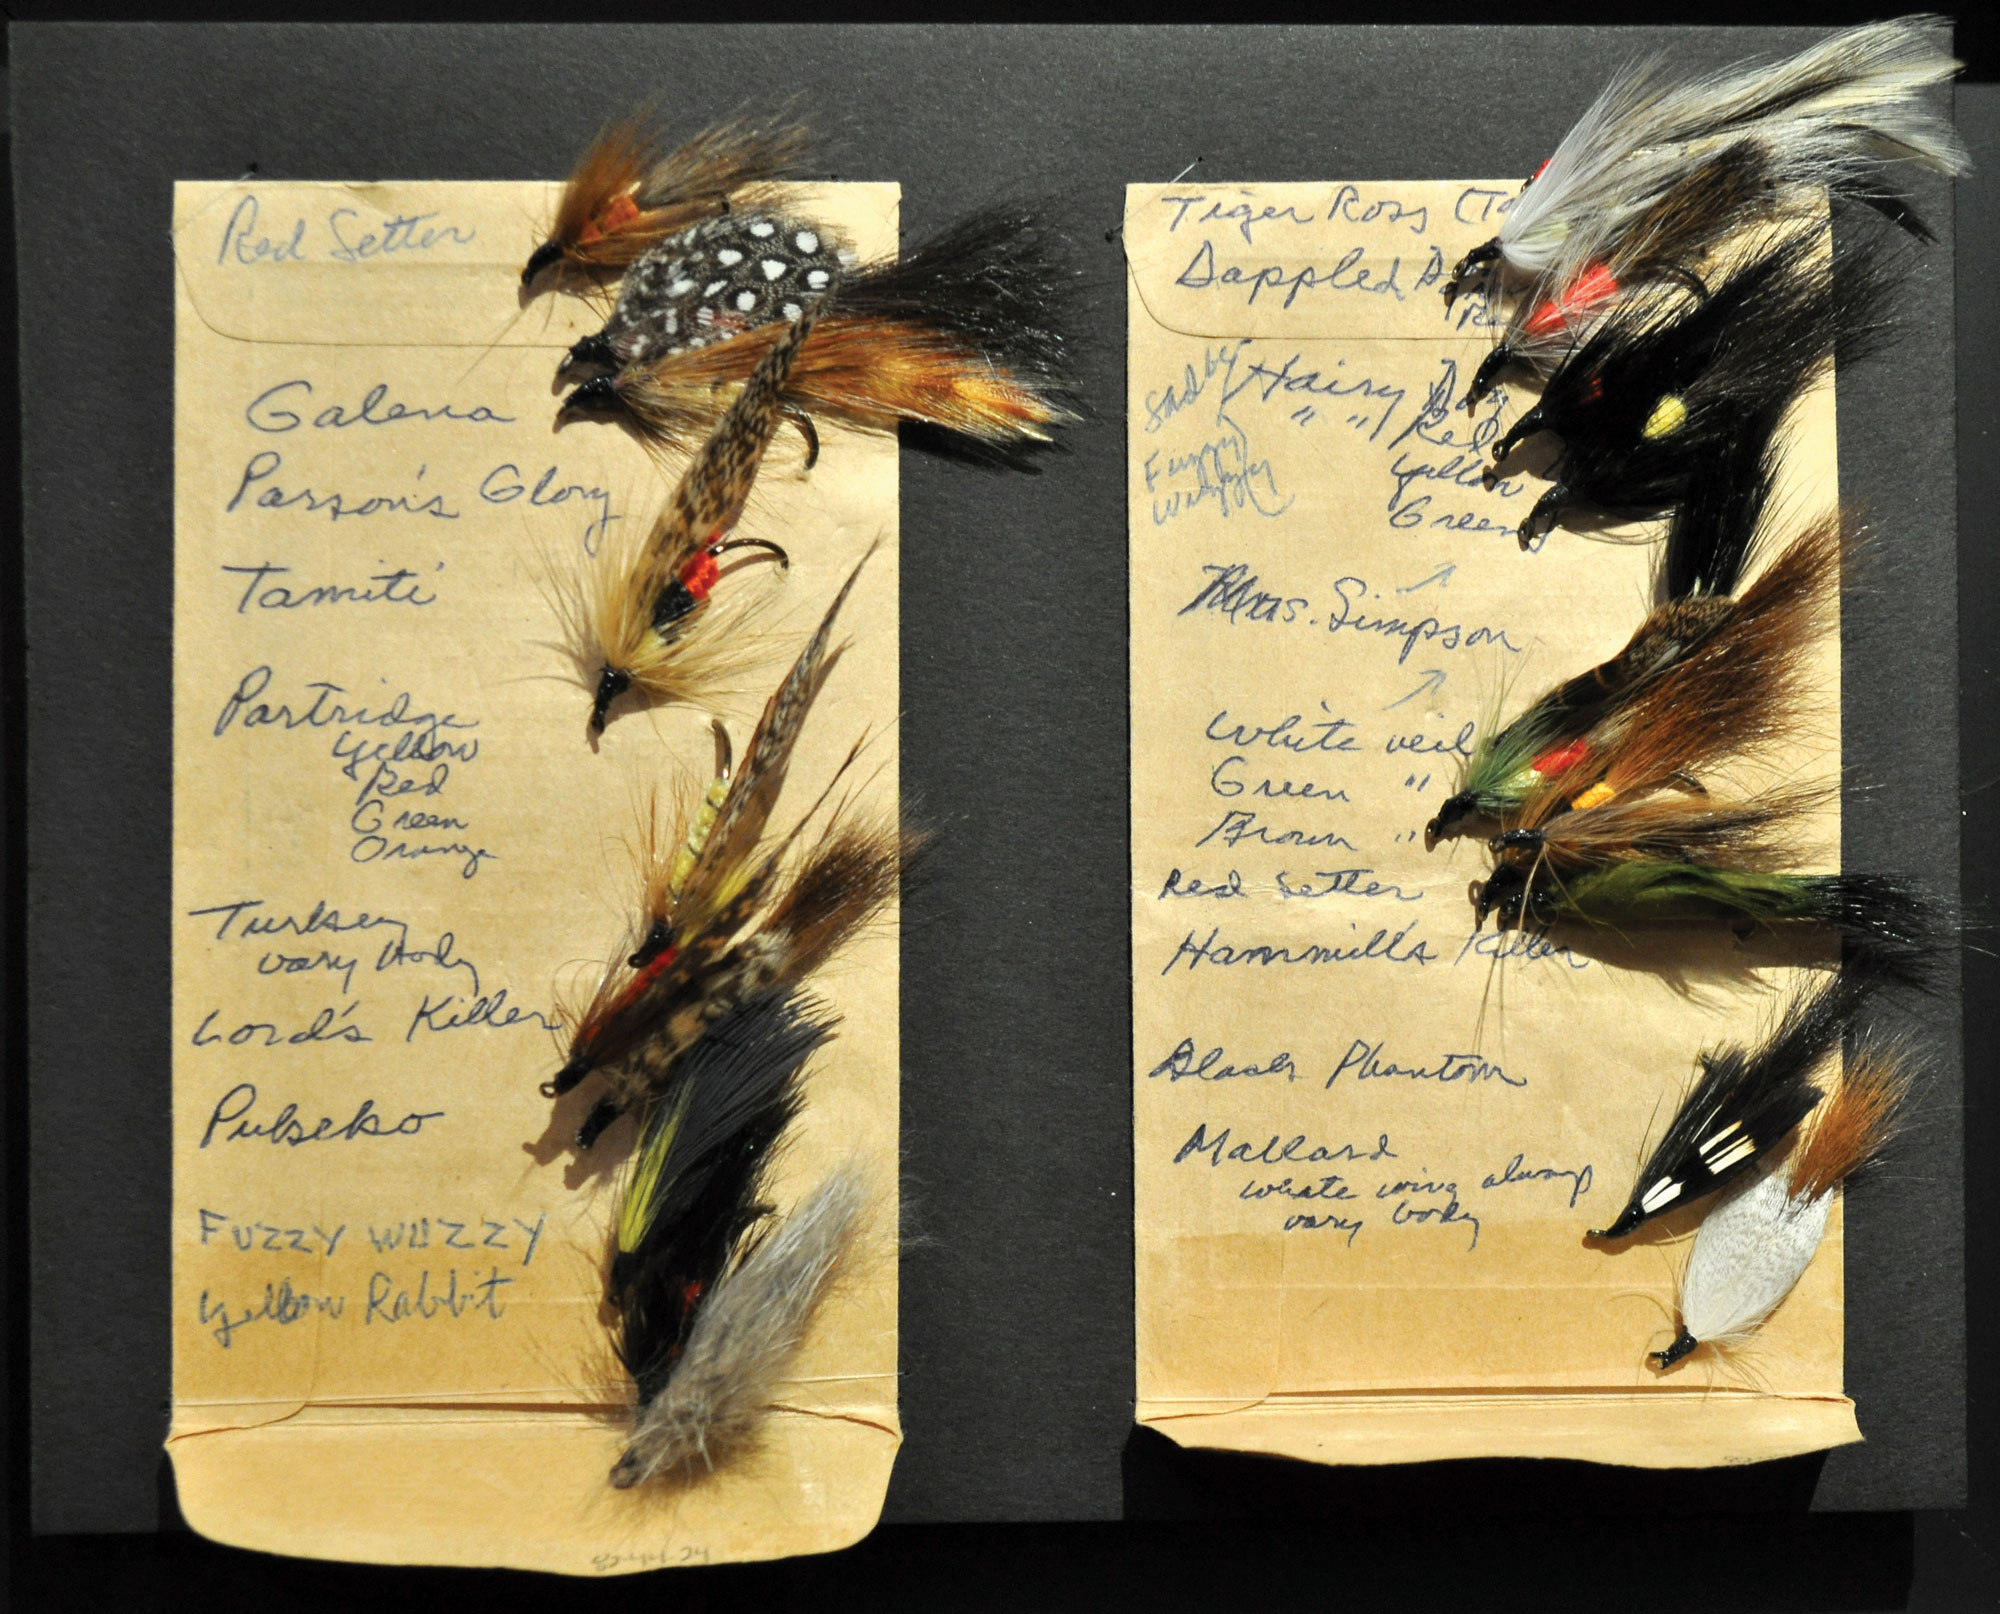 Red Setter
Galena
Parson's Glory
Tamiti
Partridge
Yellow
Red
Green
Orange
Turkey
vary body
Lord's Killer
Pukeko
FUZZY WUZZY
Yellow Rabbit
82-44-24
Tiger Ross
Dappled
Hairy Dog
" " Red
Yellow
Green
Fuzzy
Wuzzy
Mrs. Simpson
White veil
Green "
Brown "
Red Setter
Hammill's Killer
Black Phantom
Mallard
white wing always
vary body